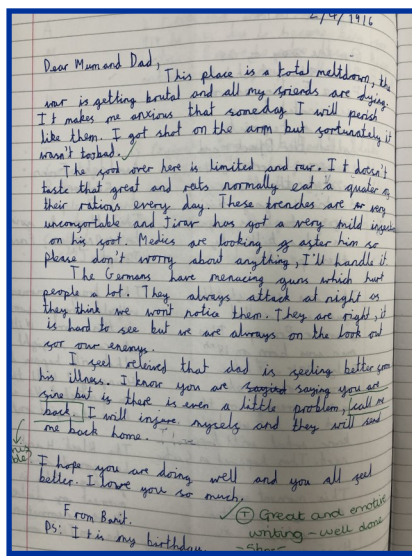 2/4/1916
Dear Mum and Dad,
This place is a total meltdown, the
war is getting brutal and all my friends are dying.
It makes me anxious that someday I will perish
like them. I got shot on the arm but fortunately it
wasn't too bad.
The food over here is limited and raw. It doesn't
taste that great and rats normally eat a quater of
their rations every day. These trenches are very
uncomfortable and Tirar has got a very mild
on his foot. Medics are looking after him so
please don't worry about anything, I'll handle it
The Germans have menacing guns which hurt
people a lot. They always attack at night as
they think we wont notice them. They are right, it
is hard to see but we are always on the look out
for our enemys.
I feel releived that dad is feeling better from
his illness. I know you are saying you are
fine but is there is even a little problem, call me
back. I will injure myself and they will send
me back home.
I hope you are doing well and you all feel
better. I love you so much.
From Barit.
PS: It is my birthday
T Great and emotive
writing - well done